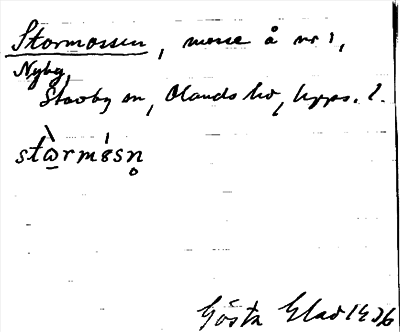 Stormossen, mosse å nr 1,
Nyby,
Stavby sn, Olands hd, Upps. l.
stɷ̀rmɵ́sn̥
Gösta Elad 1936